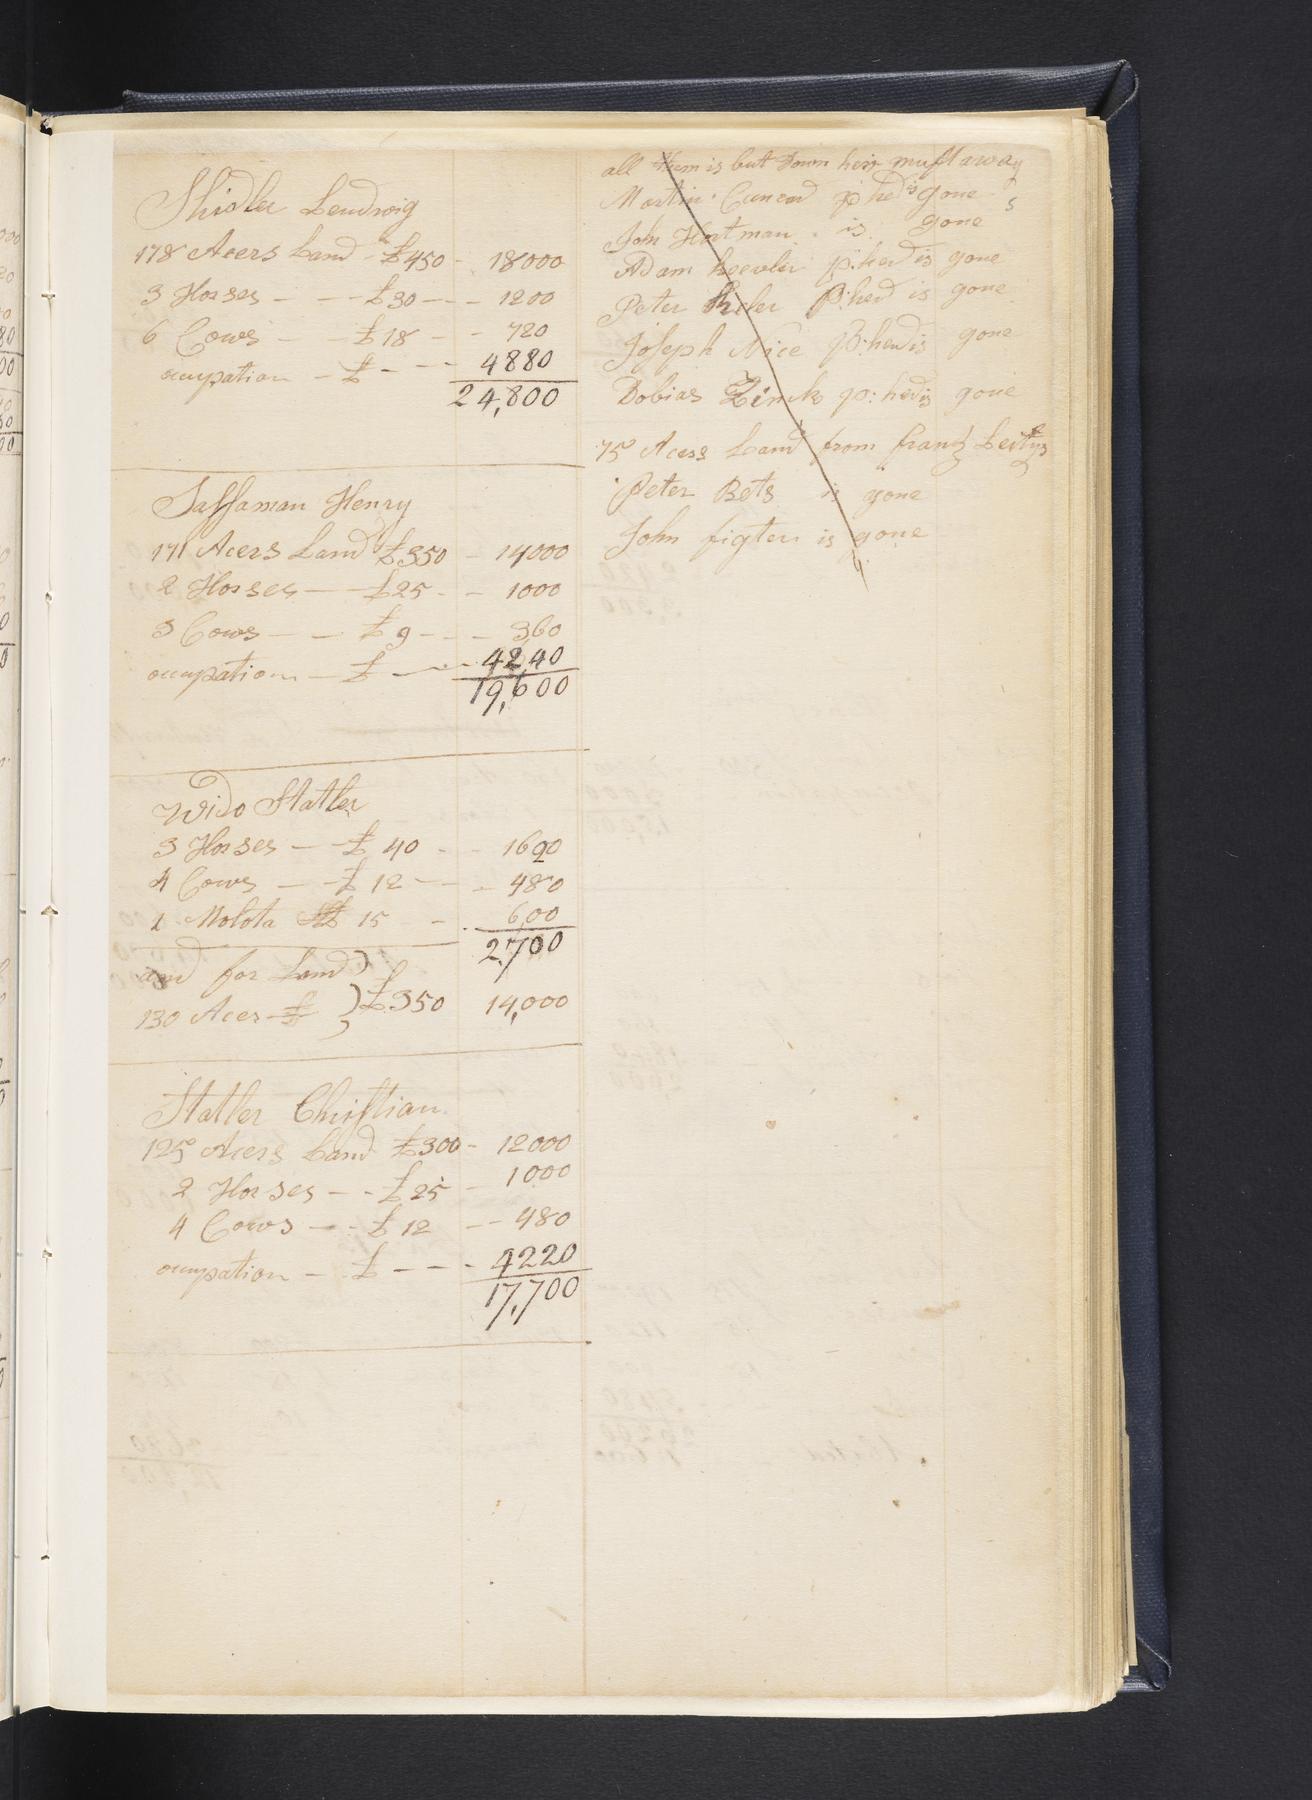 Shidler Lendwig
178 Acers Land - £450 - 18000
3 Horses - - - £30 - - - 1200
6 Cows - - £18 - - 720
ocupation - £ - - - 4880
24,800
Sassaman Henry
171 Acers Land £350 - 14000
2 Horses - - £25 - - 1000
3 Cows - - £ 9 - - - 360
ocupation - £ - - - 4240
19,600
Wido Statler
3 Horses - - £ 40 - - 1620
4 Cows - - £ 12 - - - 480
1 Molota £ 15 - - 600
2,700
and for Land )
130 Acer £ ) £350 14,000
Statler Christian
125 Acers Land £300 - 12000
2 Horses - - £ 25 - 1000
4 Cows - - £ 12 - - 480
ocupation - £ - - - 4220
17,700
all them is but Down heir must away
Martin Cunrad p hed is gone
Joh Hortman is gone
Adam p:hed is gone
Peter p:hed is gone
Joseph Nice p:hed is gone
Dobias Zinck p:hed is gone
75 Acers Land from frantz
Peter Bets is gone
John figter is gone